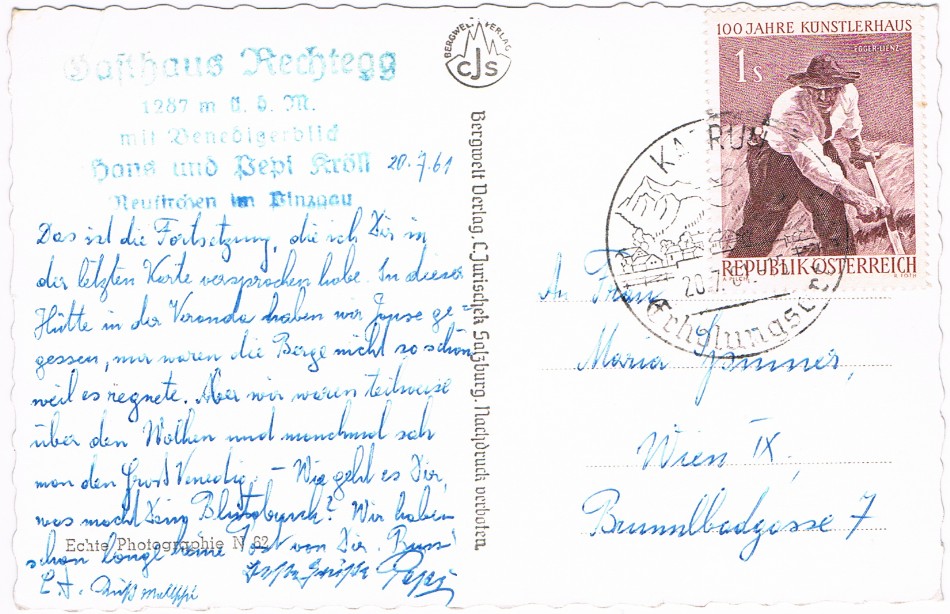 Gasthaus Rechtegg
1287 m ü. d. M.
mit Venedigerblick
Hans und Pepi Kröll 20.7.61
Neukirchen im Pinzgau
Das ist die Fortsetzung, die ich Dir in
der letzten Karte versprochen habe. In dieser
Hütte in der Veranda haben wir Jause ge-
gessen, nur waren die Berge nicht so schön
weil es regnete. Aber wir waren teilweise
über den Wolken und manchmal sah
man den Groß Venedig. – Wie geht es Dir,
was macht Dein Blutdruck? Wir haben
schon lange keine Post von Dir. Bussi
Beste Grüße
Echte Photographie N 82
BERGWELT VERLAG
CJS
Bergwelt Verlag, C. Jurischek Salzburg. Nachdruck verboten.
100 JAHRE KÜNSTLERHAUS
EGGER-LIENZ
1 S
REPUBLIK ÖSTERREICH
KAPRUN
20.7.
Erholungs
An Frau
Maria
Wien IX,
Brünnlbadgasse 7